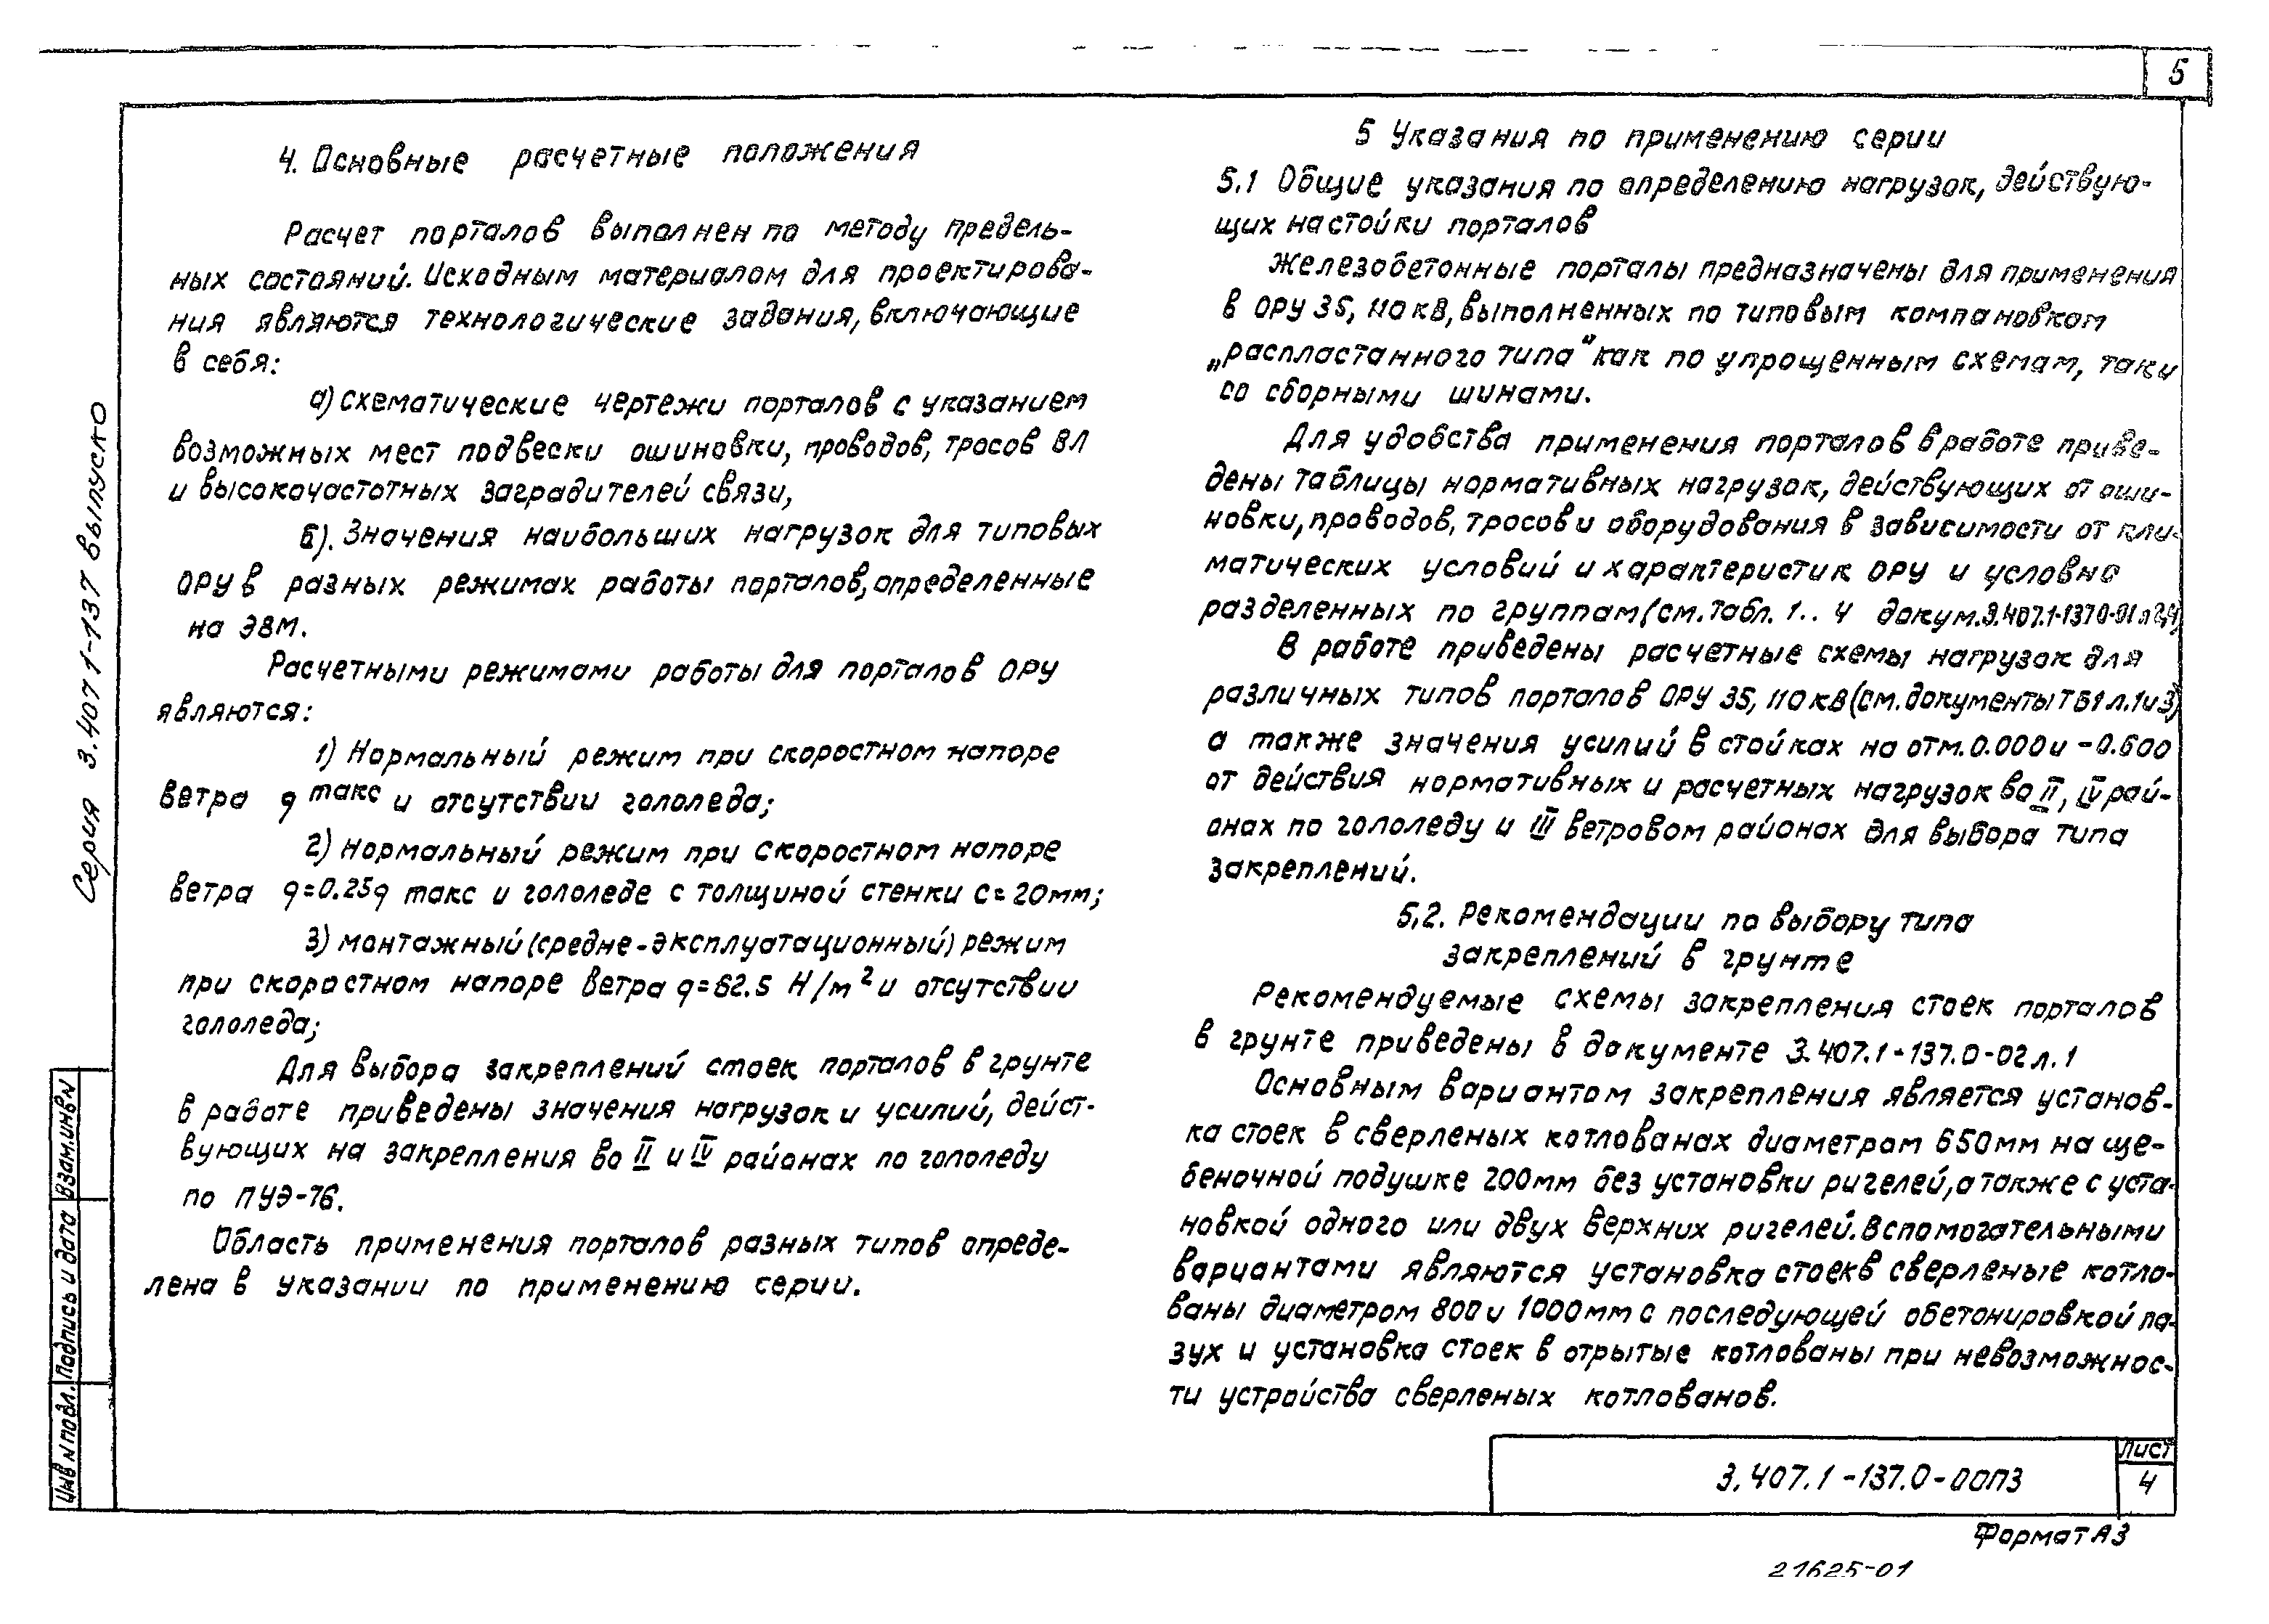 5
4. Основные расчетные положения
Расчет порталов выполнен по методу предель-
ных состояний. Исходным материалом для проектирова-
ния являются технологические задания, включающие
в себя:
а) схематические чертежи порталов с указанием
возможных мест подвески ошиновки, проводов, тросов ВЛ
и высокочастотных заградителей связи,
б). Значения наибольших нагрузок для типовых
ОРУ в разных режимах работы порталов, определенные
на ЭВМ.
Расчетными режимами работы для порталов ОРУ
являются:
1) Нормальный режим при скоростном напоре
ветра q макс и отсутствии гололеда;
2) Нормальный режим при скоростном напоре
ветра q=0.25q макс и гололеде с толщиной стенки с=20мм;
3) монтажный (средне-эксплуатационный) режим
при скоростном напоре ветра q=62.5 Н/м² и отсутствии
гололеда;
Для выбора закреплений стоек порталов в грунте
в работе приведены значения нагрузок и усилий, дейст-
вующих на закрепления во II и IV районах по гололеду
по ПУЭ-76.
Область применения порталов разных типов опреде-
лена в указании по применению серии.
5 Указания по применению серии
5.1 Общие указания по определению нагрузок, действую-
щих на стойки порталов
Железобетонные порталы предназначены для применения
в ОРУ 35, 110 кВ, выполненных по типовым компановкам
„распластанного типа" как по упрощенным схемам, так и
со сборными шинами.
Для удобства применения порталов в работе приве-
дены таблицы нормативных нагрузок, действующих от оши-
новки, проводов, тросов и оборудования в зависимости от кли-
матических условий и характеристик ОРУ и условно
разделенных по группам (см. табл. 1.. 4 докум. 3.407.1-137.0-01
В работе приведены расчетные схемы нагрузок для
различных типов порталов ОРУ 35, 110 кВ (см. документы ТБ1 л.1 и 3)
а также значения усилий в стойках на отм. 0.000 и -0.600
от действия нормативных и расчетных нагрузок во II, IV рай-
онах по гололеду и III ветровом районах для выбора типа
закреплений.
5,2. Рекомендации по выбору типа
закреплений в грунте
Рекомендуемые схемы закрепления стоек порталов
в грунте приведены в документе 3.407.1-137.0-02 л. 1
Основным вариантом закрепления является установ-
ка стоек в сверленых котлованах диаметром 650мм на ще-
беночной подушке 200мм без установки ригелей, а также с уста-
новкой одного или двух верхних ригелей. Вспомогательными
вариантами являются установка стоек в сверленые котло-
ваны диаметром 800 и 1000мм с последующей обетонировкой па-
зух и установка стоек в отрытые котлованы при невозможнос-
ти устройства сверленых котлованов.
Серия 3.407 1-137 выпуск 0
Инв N подл. Подпись и дата Взам.инв N
3.407.1-137.0-00ПЗ
Лист
4
Формат А3
21625-01